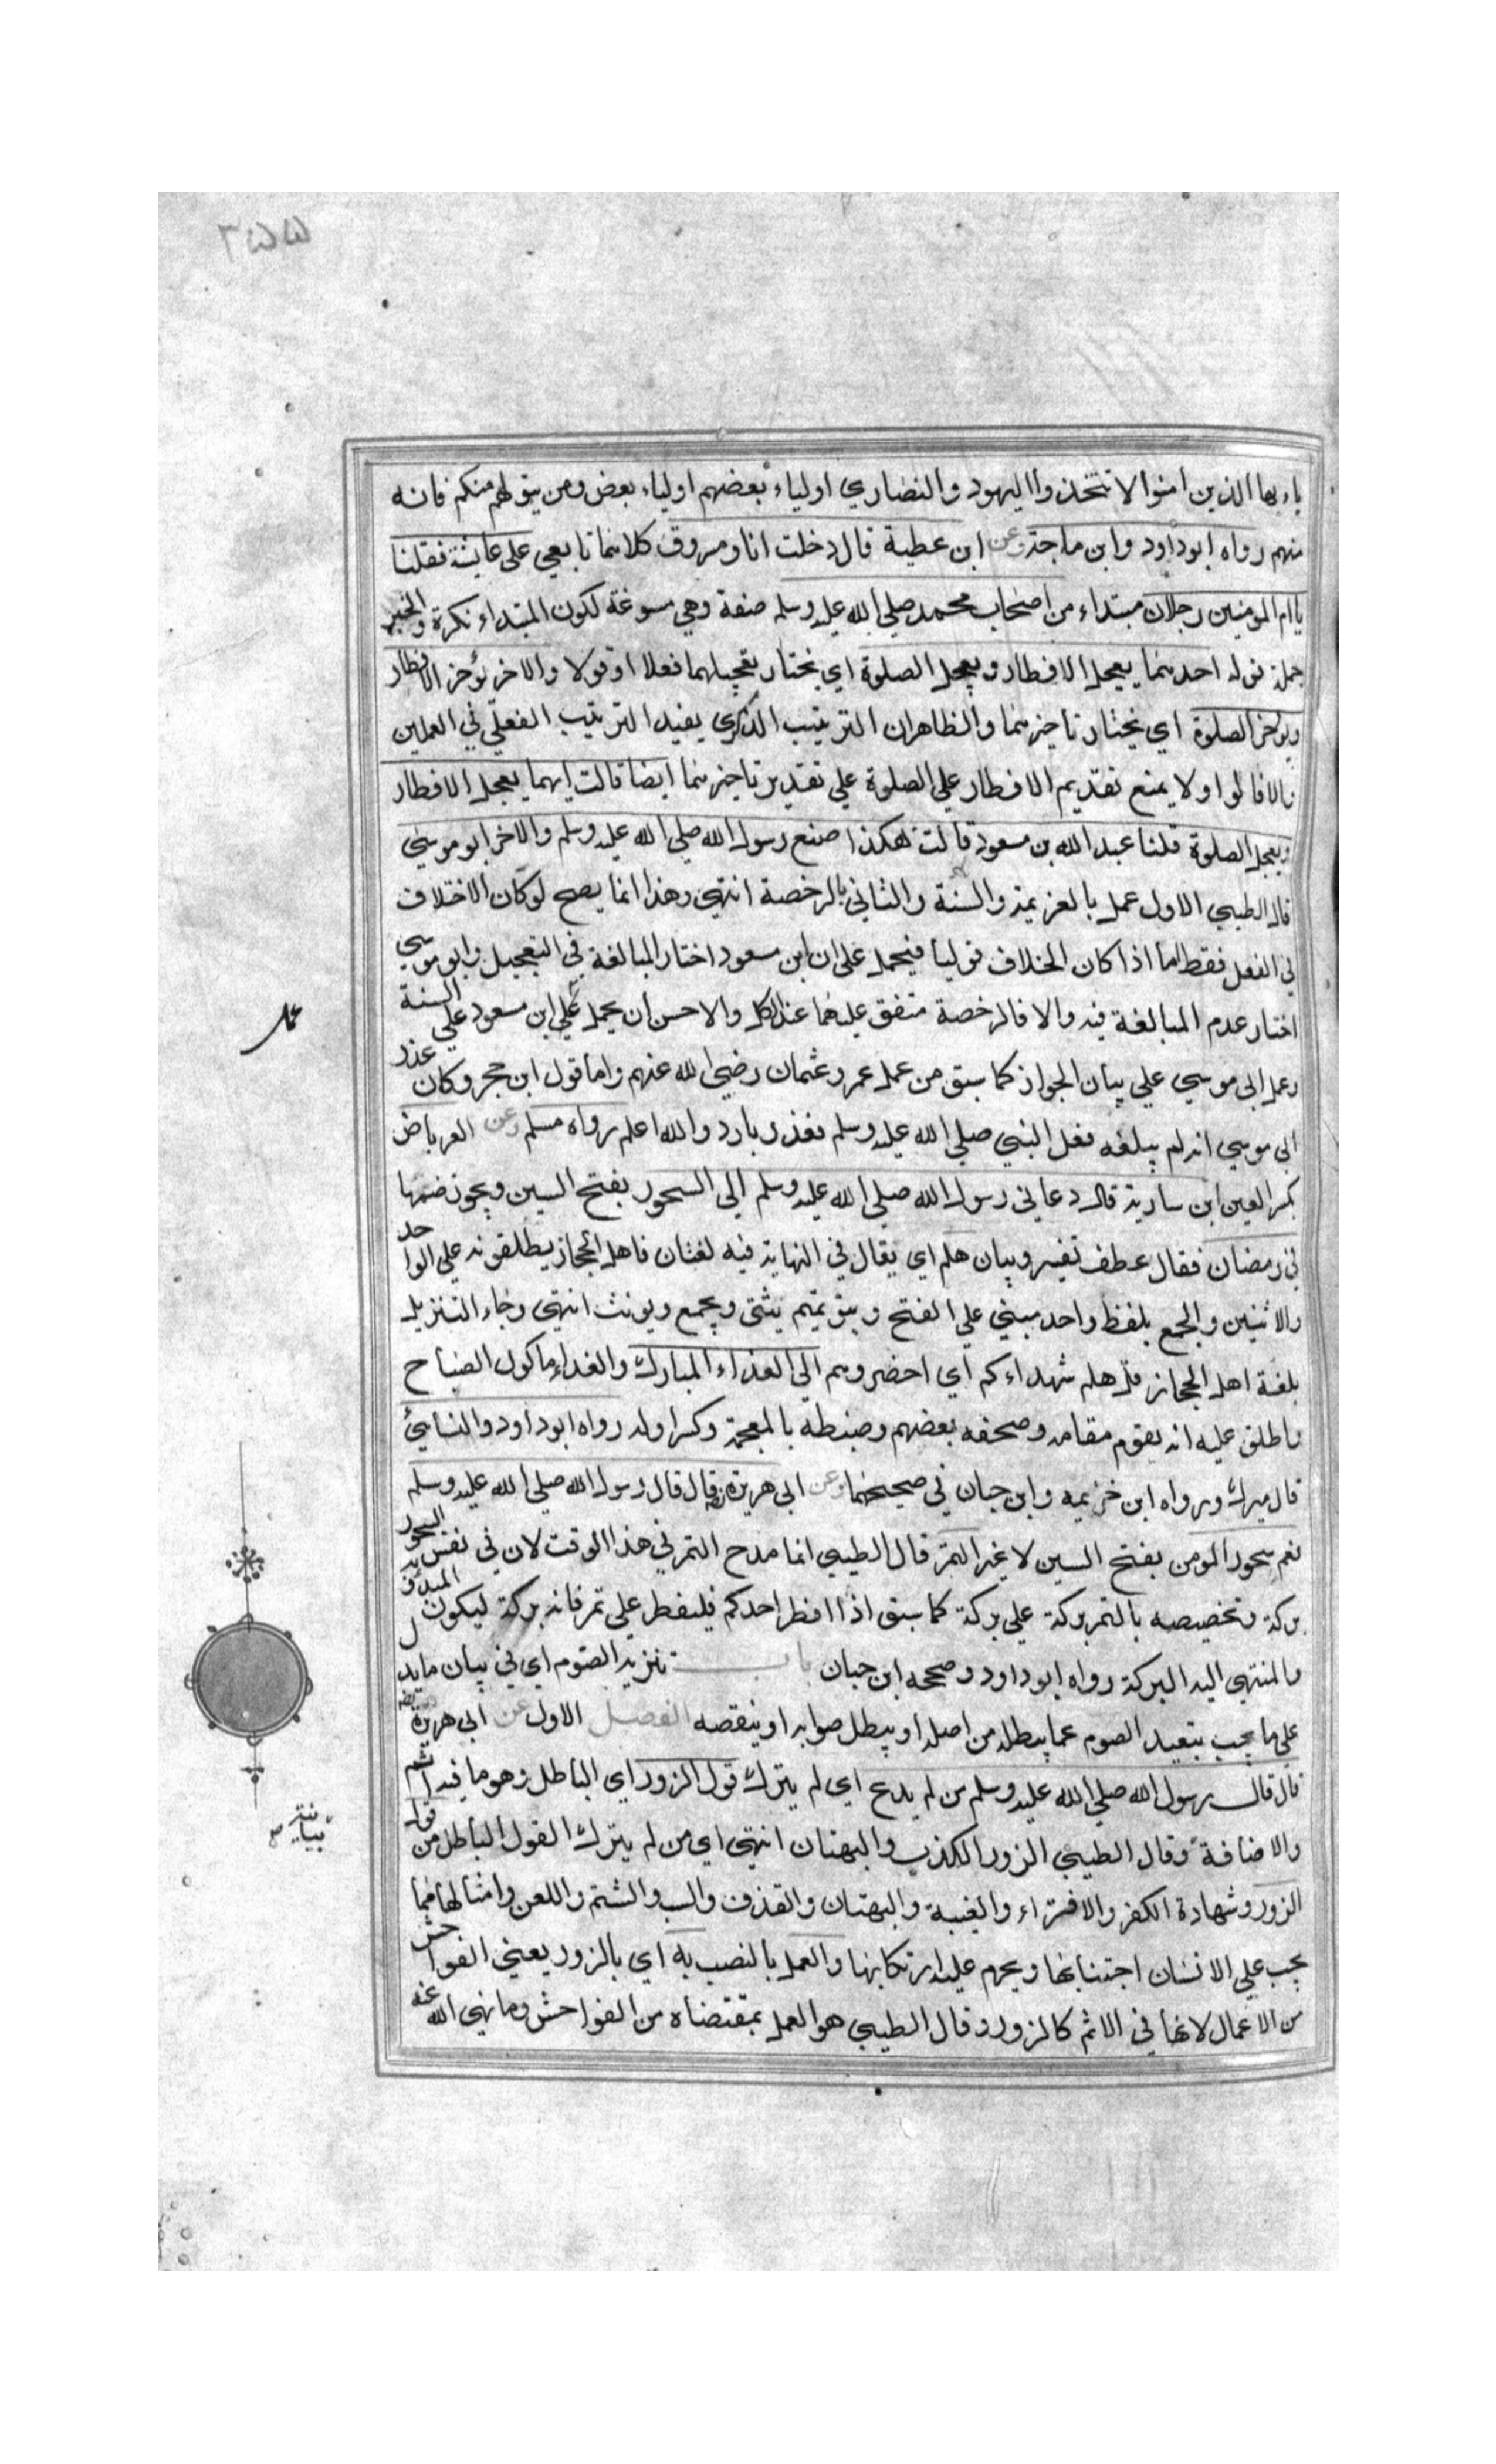 ٣٥٥
ياءيها الذين امنوا لا تتخذوا اليهود والنصاري اولياء بعضهم اولياء بعض ومن يتولهم منكم فانه
منهم رواه ابوداود وابن ماجة وعن ابن عطية قال دخلت انا ومسروق كلاهما تابعي على عايشة فقلنا
يا ام المومنين رجلان مبتداء من اصحاب محمد صلي الله عليه وسلم صفة وهي مسوغة لكون المبتداء نكرة والخبر
جملة قوله احدهما يعجل الافطار ويعجل الصلوة اي يختار تعجيلهما فعلا او قولا والاخر يؤخر الافطار
ويؤخر الصلوة اي يختار تاخيرهما والظاهر ان الترتيب الذكري يفيد الترتيب الفعلي في العملين
والا فالواو لا يمنع تقديم الافطار علي الصلوة علي تقدير تاخيرهما ايضا قالت ايهما يعجل الافطار
ويعجل الصلوة قلنا عبد الله بن مسعود قالت هكذا صنع رسول الله صلي الله عليه وسلم والاخر ابو موسي
قال الطيبي الاول عمل بالعزيمة والسنة والثاني بالرخصة انتهي وهذا انما يصح لو كان الاختلاف
في الفعل فقط اما اذا كان الخلاف قوليا فيحمل على ان ابن مسعود اختار المبالغة في التعجيل وابو موسي
اختار عدم المبالغة فيه والا فالرخصة متفق عليها عند الكل والاحسن ان يحمل علي ابن مسعود علي السنة
عمل
وعمل ابي موسي علي بيان الجواز كما سبق من عمل عمر وعثمان رضي الله عنهم واما قول ابن حجر وكان عذر
ابي موسي انه لم يبلغه فعل النبي صلي الله عليه وسلم فعذر بارد والله اعلم رواه مسلم وعن العرباض
بكسر العين ابن سارية قال دعاني رسول الله صلي الله عليه وسلم الي السحور بفتح السين ويجوز ضمها
في رمضان فقال عطف تفسير وبيان هلم اي يقال في النهاية فيه لغتان فاهل الحجاز يطلقونه علي الواحد
والاثنين والجمع بلفظ واحد مبني علي الفتح وبنو تميم يثني ويجمع ويونث انتهي وجاء التنزيل
بلغة اهل الحجاز قل هلم شهداءكم اي احضروهم الي الغذاء المبارك والغداء ماكول الصباح
واطلق عليه انه يقوم مقامه وصحفه بعضهم وضبطه بالمعجمة وكسر اوله رواه ابوداود والنسايي
قال ميرك ورواه ابن خزيمه وابن حبان في صحيحهما وعن ابي هريرة قال قال رسول الله صلي الله عليه وسلم
نعم سحور المومن بفتح السين لا غير التمر قال الطيبي انما مدح التمر في هذا الوقت لان في نفس السحور
بركة وتخصيصه بالتمر بركة علي بركة كما سبق اذا افطر احدكم فليفطر على تمر فانه بركة ليكون المبدؤ به
والمنتهي اليه البركة رواه ابوداود وصححه ابن حبان باب تنزيه الصوم اي في بيان ما يدل
علي ما يجب بتعبيد الصوم عما يبطله من اصله او يبطل صوابه او ينقصه الفصل الاول عن ابي هريرة
قال قال رسول الله صلي الله عليه وسلم من لم يدع اي لم يترك قول الزور اي الباطل وهو ما فيه اثم
والاضافة وقال الطيبي الزور الكذب والبهتان انتهي اي من لم يترك القول الباطل من قول
بيانية صح
الزور وشهادة الكفر والافتراء والغيبة والبهتان والقذف والسب والشتم واللعن وامثالها مما
يجب علي الانسان اجتنابها ويحرم عليه ارتكابها والعمل بالنصب به اي بالزور يعني الفواحش
من الاعمال لانها في الاثم كالزور وقال الطيبي هو العمل بمقتضاه من الفواحش وما نهي الله عنه